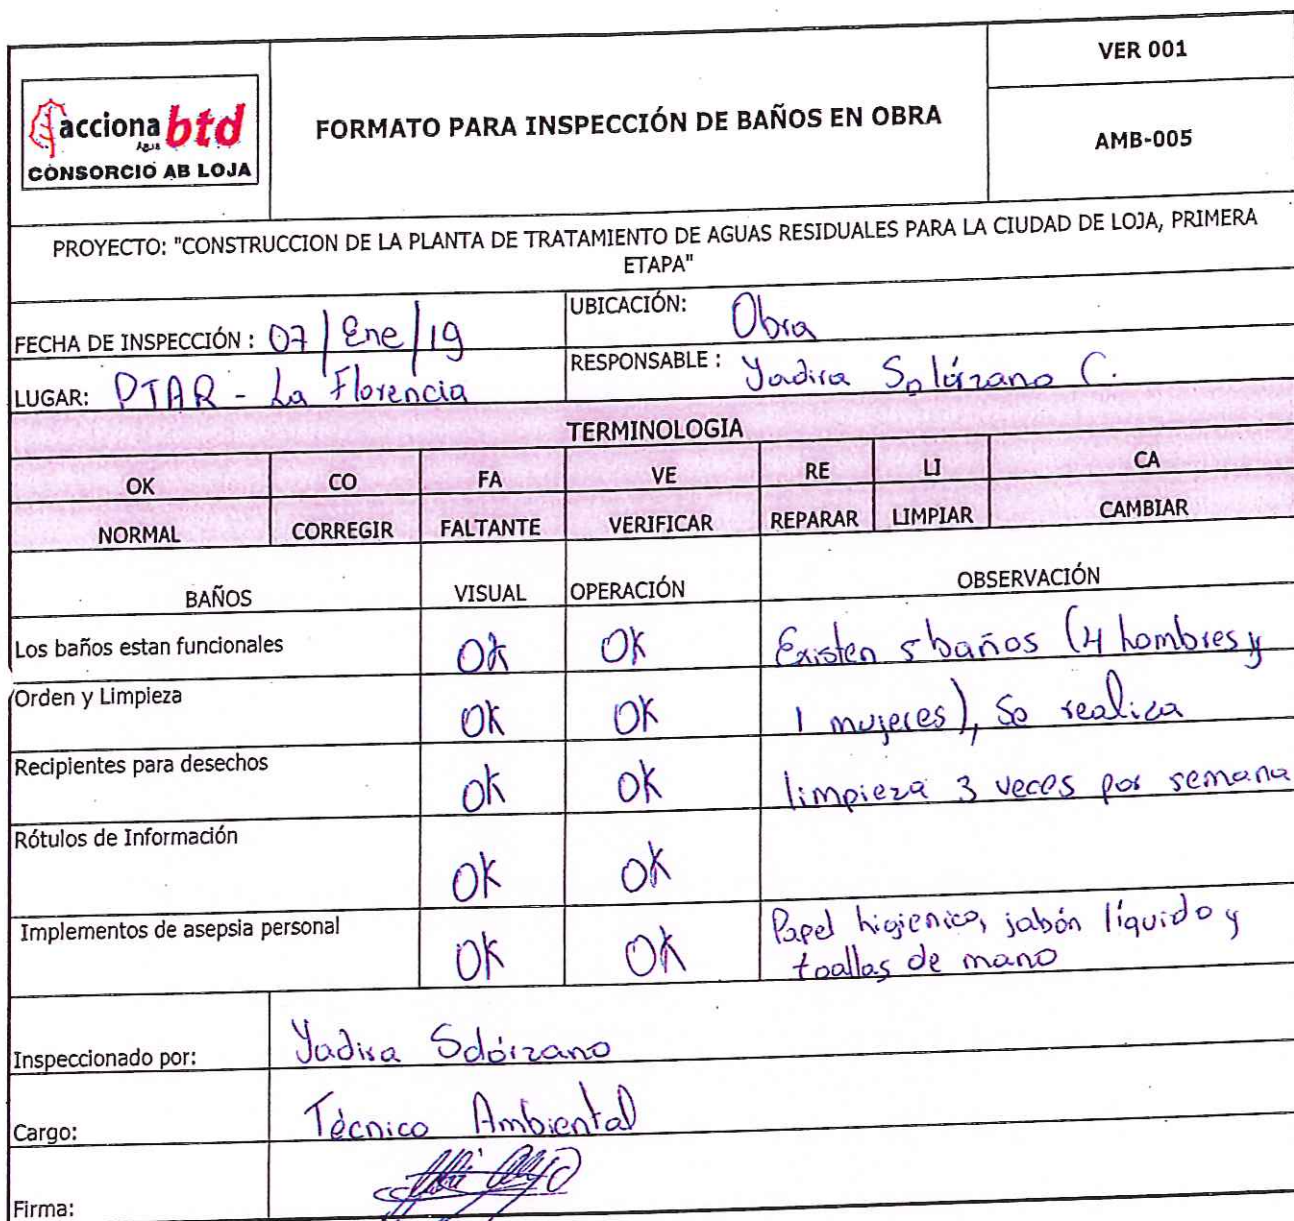 acciona btd
Agua
CONSORCIO AB LOJA
FORMATO PARA INSPECCIÓN DE BAÑOS EN OBRA
VER 001
AMB-005
PROYECTO: "CONSTRUCCION DE LA PLANTA DE TRATAMIENTO DE AGUAS RESIDUALES PARA LA CIUDAD DE LOJA, PRIMERA
ETAPA"
FECHA DE INSPECCIÓN : 07 / Ene / 19
UBICACIÓN: Obra
LUGAR: PTAR - La Florencia
RESPONSABLE : Yadira Solórzano C.
TERMINOLOGIA
OK CO FA VE RE LI CA
NORMAL CORREGIR FALTANTE VERIFICAR REPARAR LIMPIAR CAMBIAR
BAÑOS VISUAL OPERACIÓN OBSERVACIÓN
Los baños estan funcionales OK OK Existen 5 baños (4 hombres y
Orden y Limpieza OK OK 1 mujeres), Se realiza
Recipientes para desechos OK OK limpieza 3 veces por semana
Rótulos de Información OK OK
Implementos de asepsia personal OK OK Papel higienico, jabón líquido y
toallas de mano
Inspeccionado por: Yadira Solórzano
Cargo: Técnico Ambiental
Firma: